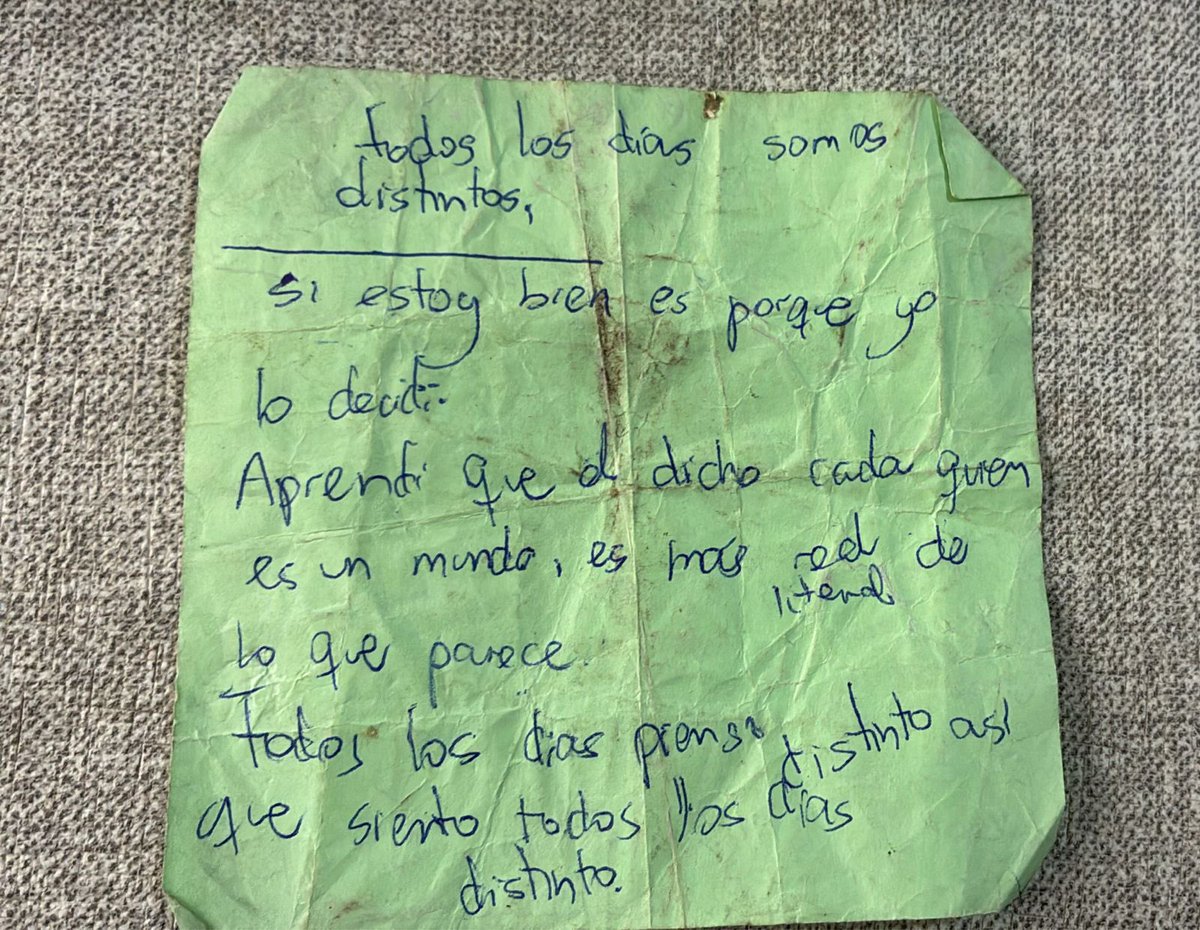 todos los días somos
distintos,
si estoy bien es porque yo
lo decidí.
Aprendí que el dicho cada quien
es un mundo, es más real de
literal
lo que parece.
Todos los días distinto así
que siento todos los días
distinto.